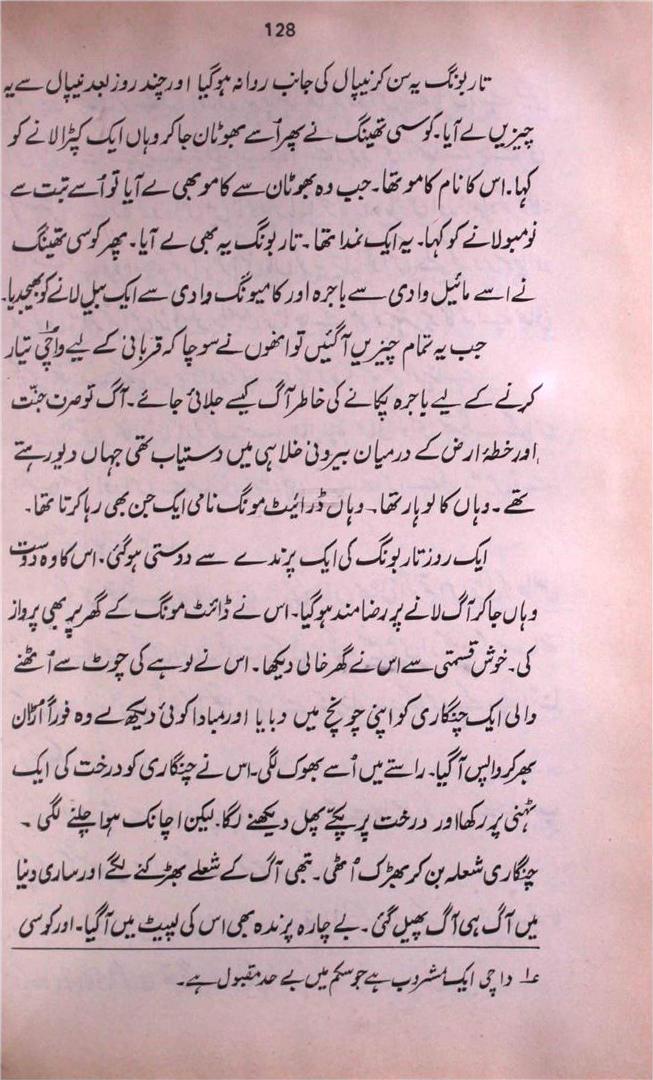 128
تار بونگ یہ سن کر نیپال کی جانب روانہ ہوگیا اور چند روز بعد نیپال سے یہ
چیزیں لے آیا۔ کوسی تھینگ نے پھر اُسے بھوٹان جا کر وہاں ایک کپڑا لانے کو
کہا۔ اس کا نام کامو تھا۔ جب وہ بھوٹان سے کامو بھی لے آیا تو اُسے تبت سے
نومبو لانے کو کہا۔ یہ ایک نمدا تھا۔ تار بونگ یہ بھی لے آیا۔ پھر کوسی تھینگ
نے اسے مائیل وادی سے باجرہ اور کامیونگ وادی سے ایک بیل لانے کو بھیجدیا۔
جب یہ تمام چیزیں آگئیں تو انھوں نے سوچا کہ قربانی کے لیے واچی؎۱ تیار
کرنے کے لیے باجرہ پکانے کی خاطر آگ کیسے جلائی جائے۔ آگ تو صرف جنّت
اور خطۂ ارض کے درمیان بیرونی خلا ہی میں دستیاب تھی جہاں دیو رہتے
تھے۔ وہاں کا لوہار تھا۔ وہاں ڈرائیٹ مونگ نامی ایک جن بھی رہا کرتا تھا۔
ایک روز تار بونگ کی ایک پرندے سے دوستی ہوگئی۔ اس کا وہ دوست
وہاں جا کر آگ لانے پر رضا مند ہوگیا۔ اس نے ڈائٹ مونگ کے گھر پر بھی پرواز
کی۔ خوش قسمتی سے اس نے گھر خالی دیکھا۔ اس نے لوہے کی چوٹ سے اُٹھنے
والی ایک چنگاری کو اپنی چونچ میں دبایا اور مبادا کوئی دیکھ لے وہ فوراً اُڑان
بھر کر واپس آگیا۔ راستے میں اُسے بھوک لگی۔ اس نے چنگاری کو درخت کی ایک
ٹہنی پر رکھا اور درخت پر پکّے پھل دیکھنے لگا۔ لیکن اچانک ہوا چلنے لگی۔
چنگاری شعلہ بن کر بھڑک اُٹھی۔ تبھی آگ کے شعلے بھڑکنے لگے اور ساری دنیا
میں آگ ہی آگ پھیل گئی۔ بے چارہ پرندہ بھی اس کی لپیٹ میں آگیا۔ اور کوسی
؎۱ داچی ایک مشروب ہے جو سکم میں بے حد مقبول ہے۔